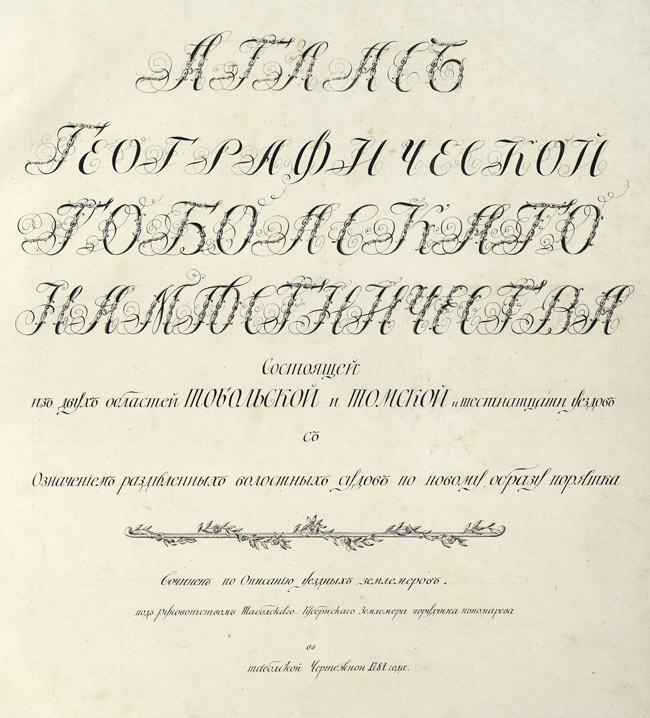 АТЛАСЪ
ГЕОГРАФИЧЕСКОЙ
ТОБОЛСКАГО
НАМѢСТНИЧЕСТВА
Состоящей
изъ двухъ областей ТОБОЛЬСКОЙ и ТОМСКОЙ и шестнатцати уездовъ
съ
Означенiемъ раздѣленныхъ волостныхъ судовъ по новому образу порятка
Сочиненъ по Описанiю уездныхъ землемеровъ.
подъ руководствомъ Таболскаго Губернскаго Землемера порутчика пономарева
въ
таболской Чертежной 1781 года.